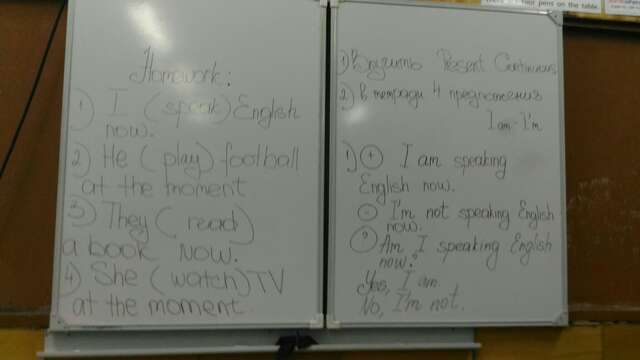 Homework:
1) I (speak) English
now.
2) He (play) football
at the moment
3) They (read)
a book now.
4) She (watch) TV
at the moment.
pens on the table.
1) Выучить Present Continuous
2) в тетради 4 предложения
I am - I'm
1) + I am speaking
English now.
- I'm not speaking English
now.
? Am I speaking English
now?
Yes, I am.
No, I'm not.